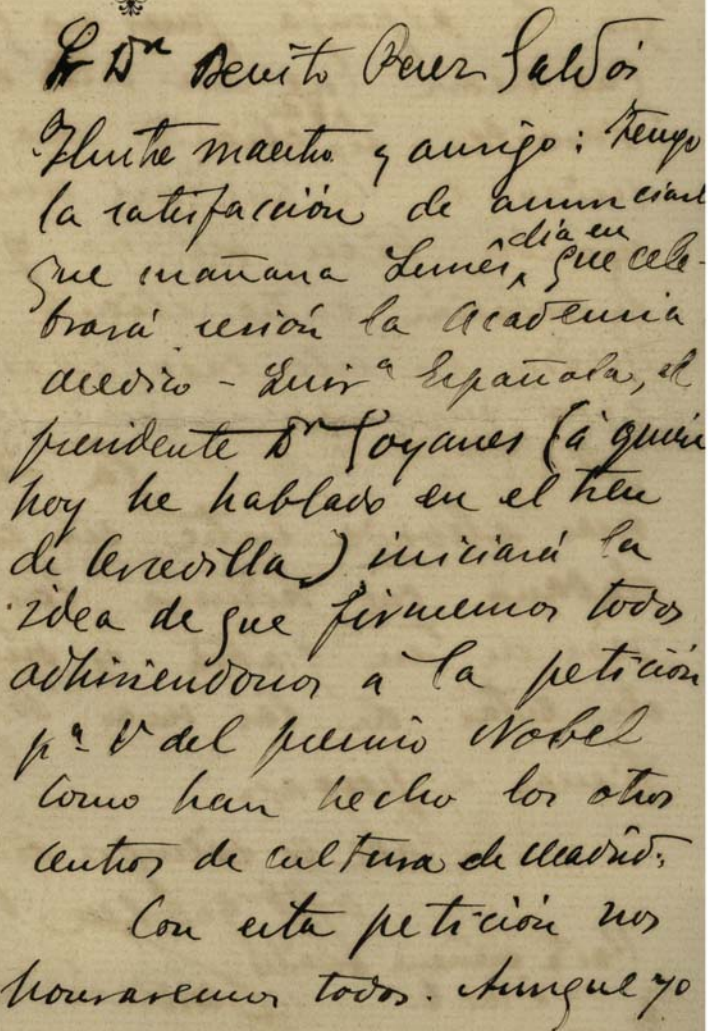 Sr Dn Benito Perez Galdós
Ilustre maestro y amigo: Tengo
la satisfacción de anunciarle
que mañana Lunes, día en que cele-
brará sesión la Academia
Medico - Quirª Española, el
presidente Dr Goyanes (á quien
hoy he hablado en el tren
de Cercedilla) iniciará la
idea de que firmemos todos
adhiriendonos a la petición
pª V del premio Nobel
como han hecho los otros
centros de cultura de Madrid.
Con esta petición nos
honraremos todos. Aunque yo